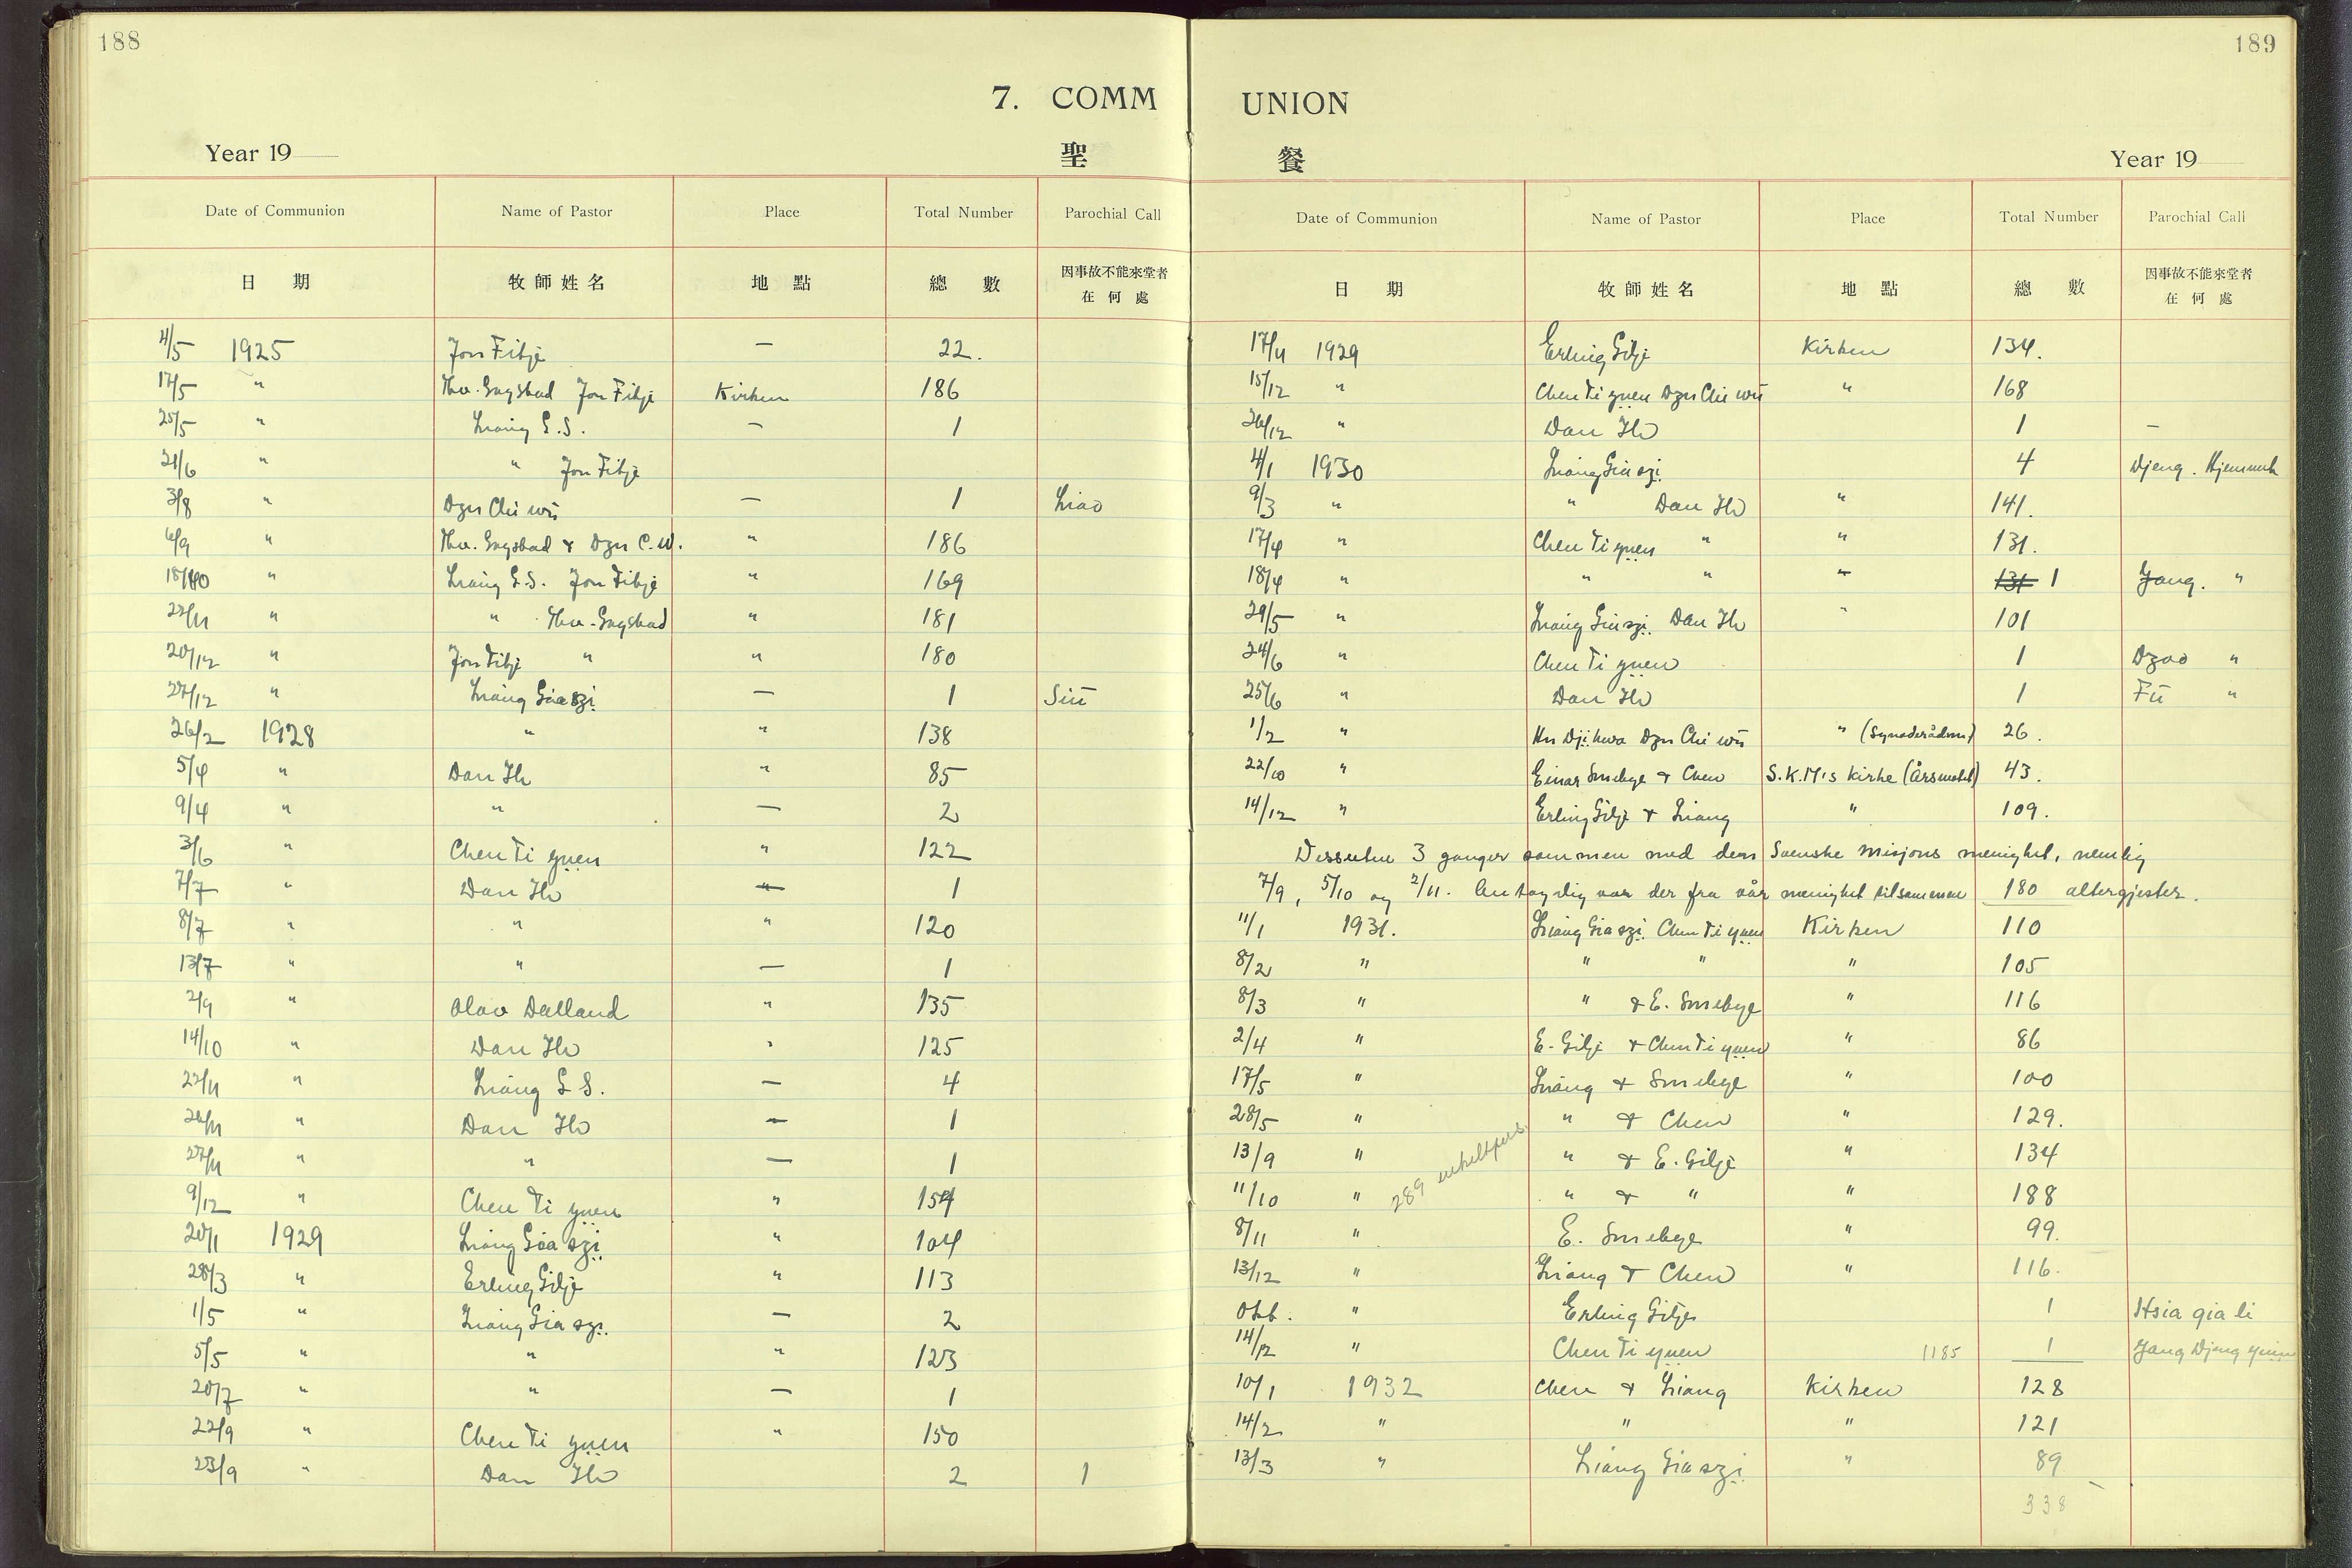 188
7. COMM
Year 19
聖
Date of Communion Name of Pastor Place Total Number Parochial Call
日期 牧師姓名 地點 總數 因事故不能來堂者
在何處
4/5 1925 Jon Fitje — 22.
17/5 " Jon Fitje Kirken 186
25/5 " Liang G.S. — 1
21/6 " " Jon Fitje
3/8 " Dzu Chi wu — 1 Liao
6/9 " & Dzu C. W. " 186
18/10 " Liang G.S. Jon Fitje " 169
22/11 " " " 181
20/12 " Jon Fitje " " 180
27/12 " Liang Gia szi — 1 Siü
26/2 1928 " " 138
5/4 " Dan Ho " 85
9/4 " " — 2
3/6 " Chen Ti yuen " 122
7/7 " Dan Ho — 1
8/7 " " " 120
13/7 " " — 1
2/9 " Olav Dalland " 135
14/10 " Dan Ho " 125
22/11 " Liang G S. — 4
26/11 " Dan Ho — 1
27/11 " " — 1
9/12 " Chen Ti yuen " 154
20/1 1929 Liang Gia szi " 104
28/3 " Erling Gilje " 113
1/5 " Liang Gia szi — 2
5/5 " " " 123
20/7 " " — 1
22/9 " Chen Ti yuen " 150
23/9 " Dan Ho 2 1
189
UNION
餐
Year 19
Date of Communion Name of Pastor Place Total Number Parochial Call
日期 牧師姓名 地點 總數 因事故不能來堂者
在何處
17/11 1929 Erling Gilje Kirken 134.
15/12 " Chen Ti yuen Dzu Chi wu " 168
26/12 " Dan Ho 1 —
4/1 1930 Liang Gia szi 4 Djeng. Hjemme
9/3 " " Dan Ho " 141.
17/4 " Chen Ti yuen " " 131.
18/4 " " " — 131 1 Yang. "
29/5 " Liang Gia szi Dan Ho " 101
24/6 " Chen Ti yuen 1 Dzao "
25/6 " Dan Ho 1 Fü "
1/2 " Hu Dji hwa Dzu Chi wu " (Synoderådsm) 26.
22/10 " Einar Smebye & Chen S.K.M's Kirke (Årsmøtet) 43.
14/12 " Erling Gilje & Liang " 109.
Dessuten 3 ganger sammen med den Svenske Misjons menighet, nemlig
7/9, 5/10 og 2/11. Antagelig var der fra vår menighet tilsammen 180 altergjester.
11/1 1931. Liang Gia szi Chen Ti yuen Kirken 110
8/2 " " " " 105
8/3 " " & E. Smebye " 116
2/4 " E. Gilje & Chen Ti yuen " 86
17/5 " Liang & Smebye " 100
28/5 " " & Chen " 129.
13/9 " " & E. Gilje " 134
11/10 " 289 enkeltpers. " & " " 188
8/11 " E. Smebye " 99.
13/12 " Liang & Chen " 116.
Okt. " Erling Gilje 1 Hsia gia li
14/12 " Chen Ti yuen 1185 1 Yang Djeng yuin
10/1 1932 Chen & Liang Kirken 128
14/2 " " " 121
13/3 " Liang Gia szi " 89
338